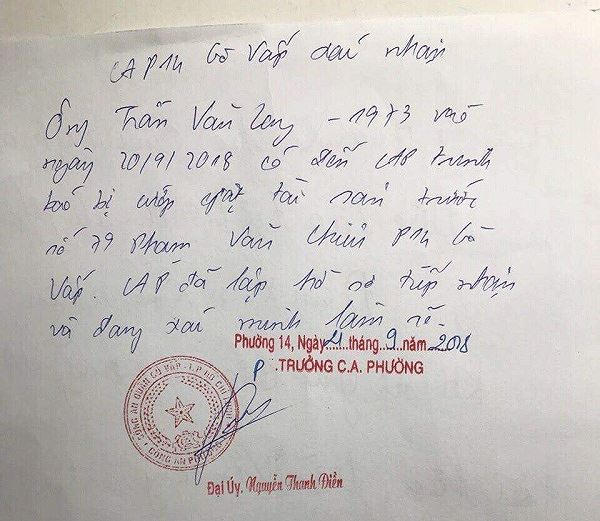 CAP14 Gò Vấp xác nhận
Ông Trần Văn Long - 1973 vào
ngày 20/9/2018 có đến CAP trình
báo bị cướp giật tài sản trước
số 79 Phạm Văn Chiêu P14 Gò
Vấp. CAP đã lập hồ sơ tiếp nhận
và đang xác minh làm rõ.
Phường 14, Ngày 21 tháng 9 năm 2018
P .TRƯỞNG C.A. PHƯỜNG
CÔNG AN QUẬN GÒ VẤP - T.P HỒ CHÍ MINH
CÔNG AN PHƯỜNG
Đại Úy. Nguyễn Thanh Điền